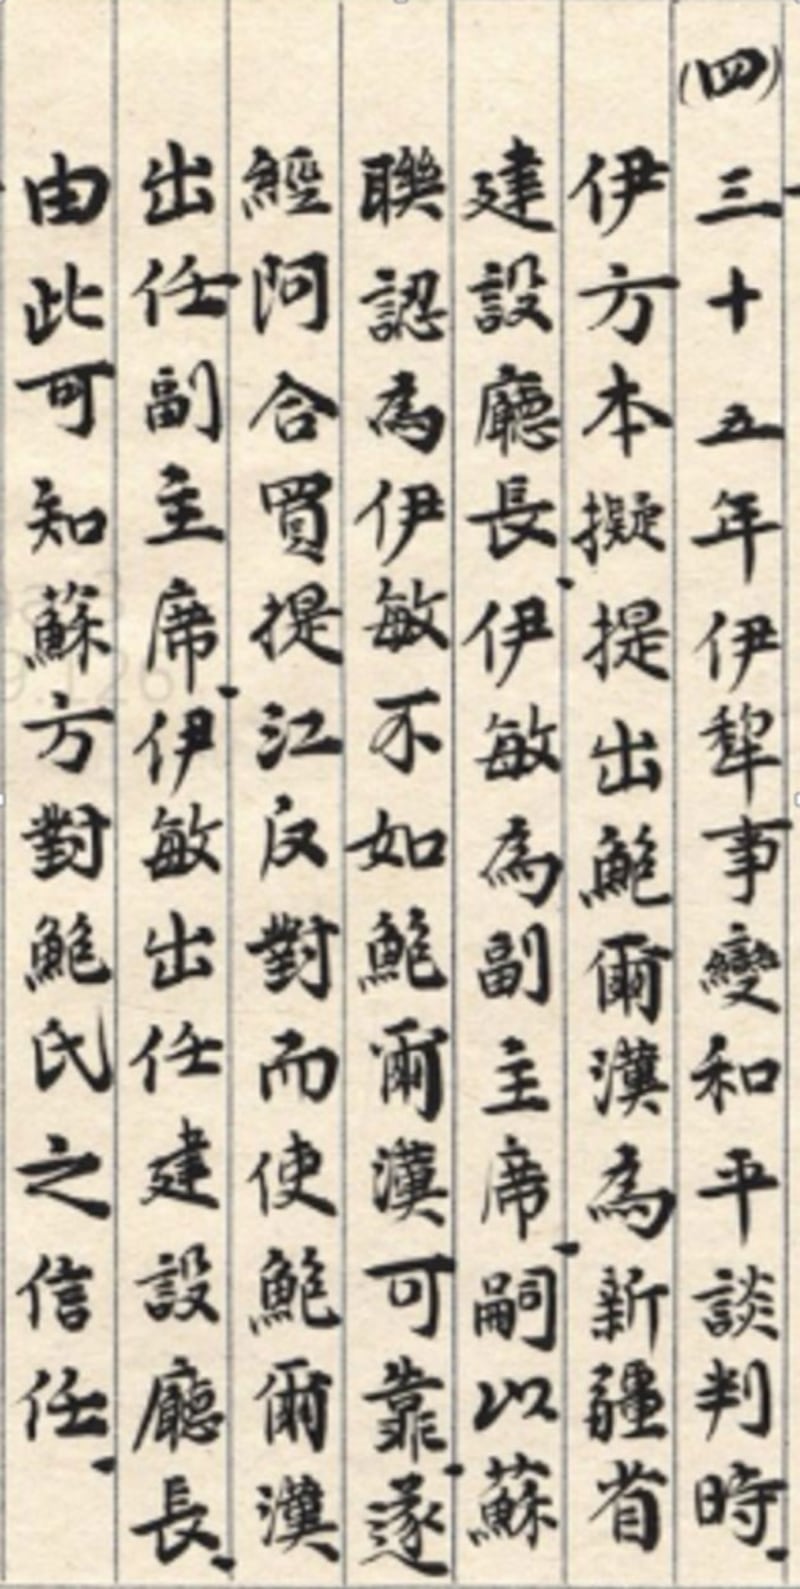 (四)三十五年伊犂事變和平談判時、
伊方本擬提出鮑爾漢為新疆省
建設廳長、伊敏為副主席、嗣以蘇
聯認為伊敏不如鮑爾漢可靠、遂
經阿合買提江反對而使鮑爾漢
出任副主席、伊敏出任建設廳長、
由此可知蘇方對鮑氏之信任、